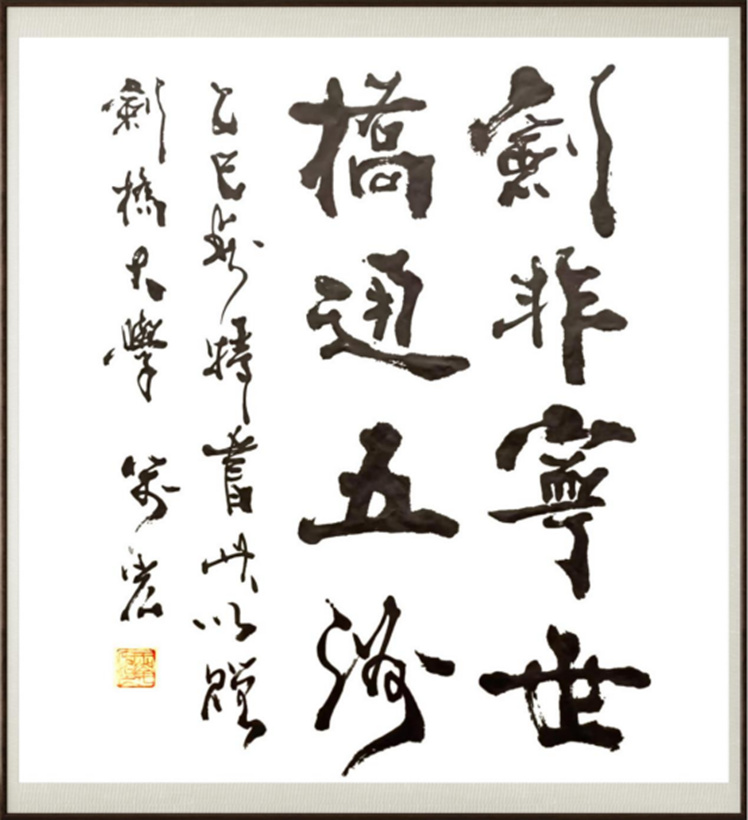 劍非寧世
橋通五洲
乙巳秋特書此以贈
劍橋大學